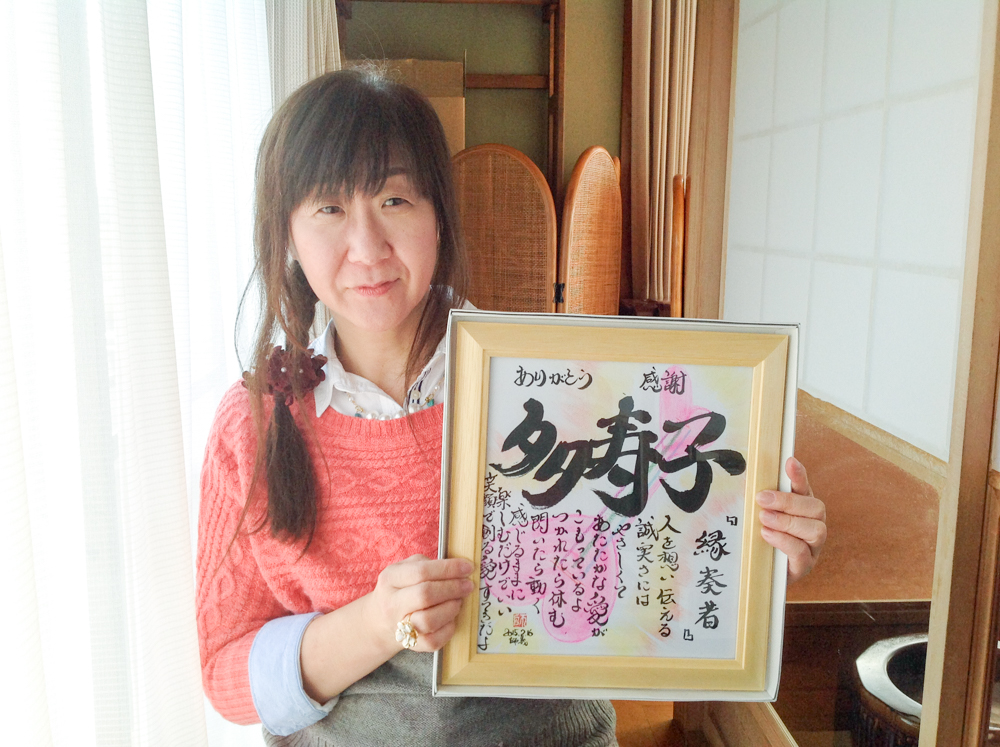 ありがとう 感謝
多寿子
『縁奏者』
人を想い伝える
誠実さには
やさしくて
あたたかな愛が
こもっているよ
つかれたら休む
閃いたら動く
感じるままに
楽しむだけでいい
笑顔で創る愛